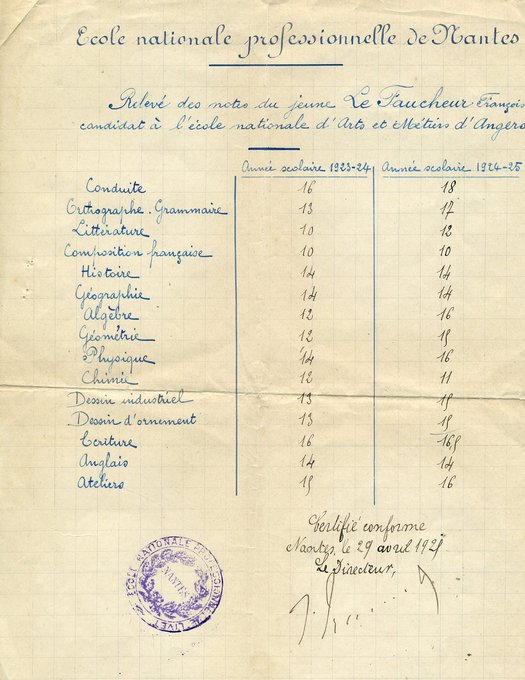 Ecole nationale professionnelle de Nantes
Relevé des notes du jeune Le Faucheur François
candidat à l'école nationale d'Arts et Métiers d'Angers
Année scolaire 1923-24 Année scolaire 1924-25
Conduite 16 18
Orthographe. Grammaire 13 17
Littérature 10 12
Composition française 10 10
Histoire 14 14
Géographie 14 14
Algèbre 12 16
Géométrie 12 15
Physique 14 16
Chimie 12 11
Dessin industriel 13 15
Dessin d'ornement 13 15
Ecriture 16 16,5
Anglais 14 14
Ateliers 15 16
Certifié conforme
Nantes, le 29 avril 1925
Le Directeur,
ECOLE NATIONALE PROFESSIONNELLE LIVET
NANTES